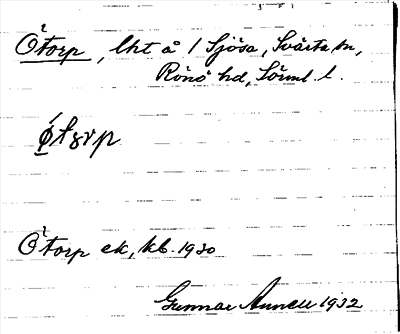 Ötorp, lht å 1 Sjösa, Svärta sn,
Rönö hd, Sörml. l.
ǿtꞷrp
Ötorp ek, kb. 1930
Gunnar Annell 1932